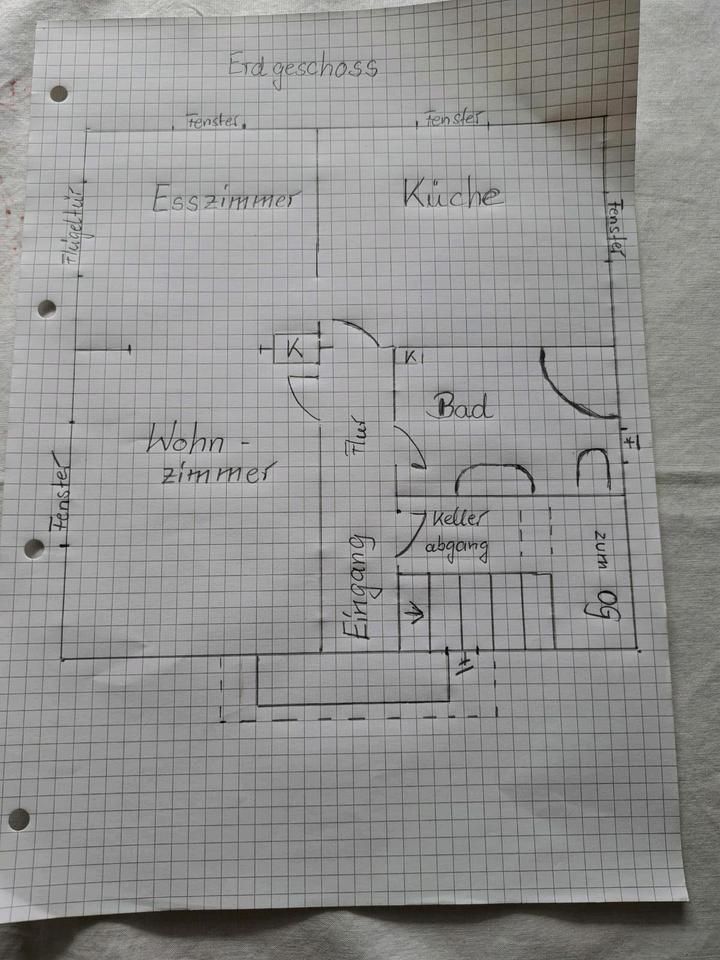 Erdgeschoss
Fenster
Fenster
Esszimmer
Küche
Flügeltür
Fenster
K
K
Bad
Wohn-
zimmer
Flur
Fenster
Keller
abgang
zum OG
Eingang